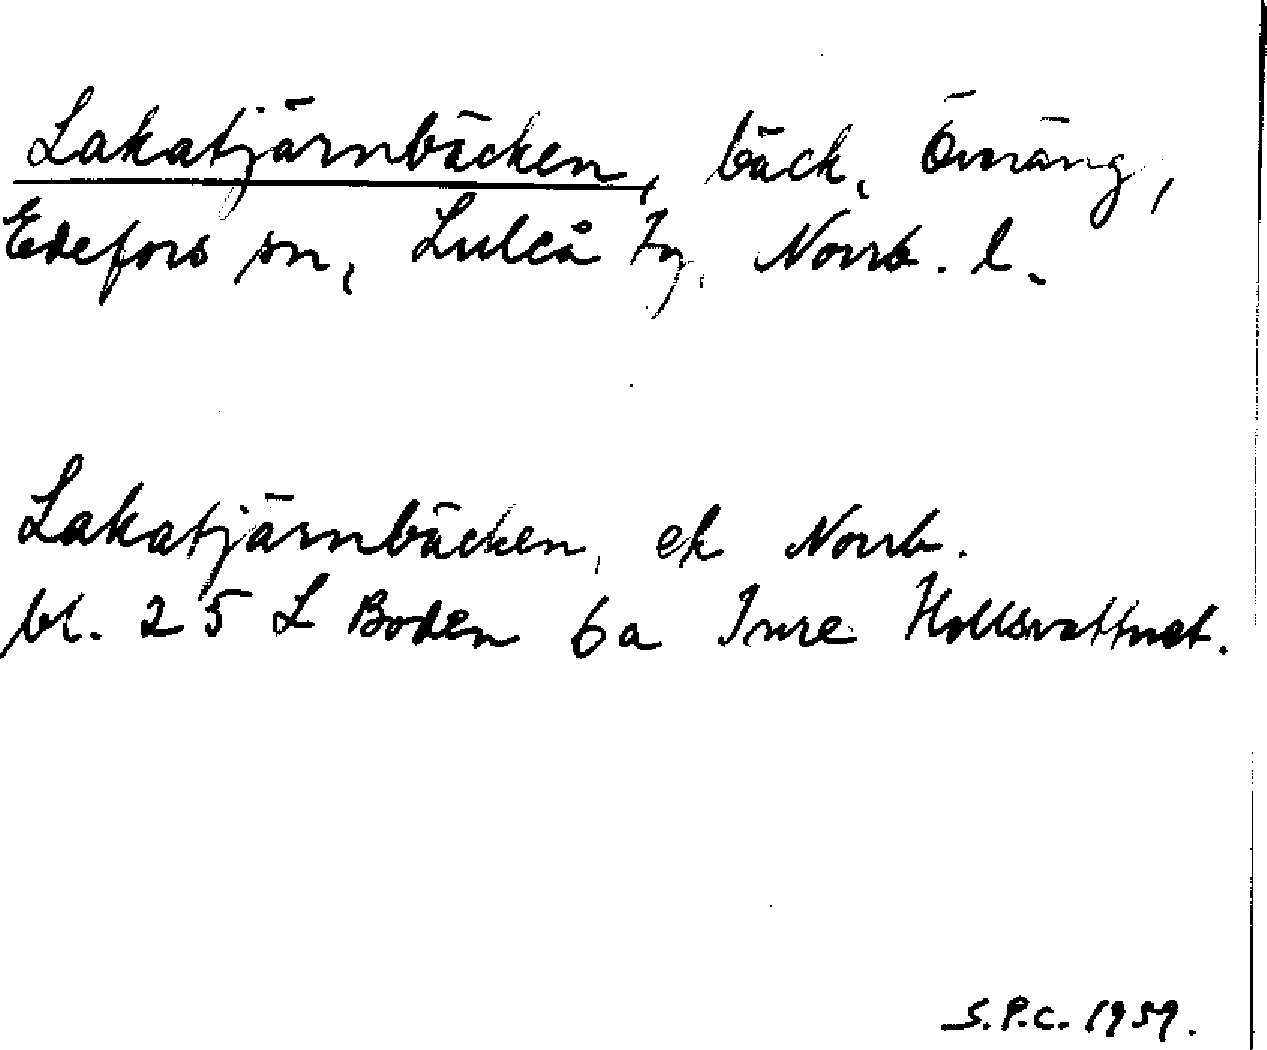 Lakatjärnbäcken, bäck, Överäng,
Edefors sn, Luleå tg, Norrb. l.
Lakatjärnbäcken, ek Norrb.
bl. 25 L Boden 6a Inre Hollsvattnet.
S.P.C. 1959.